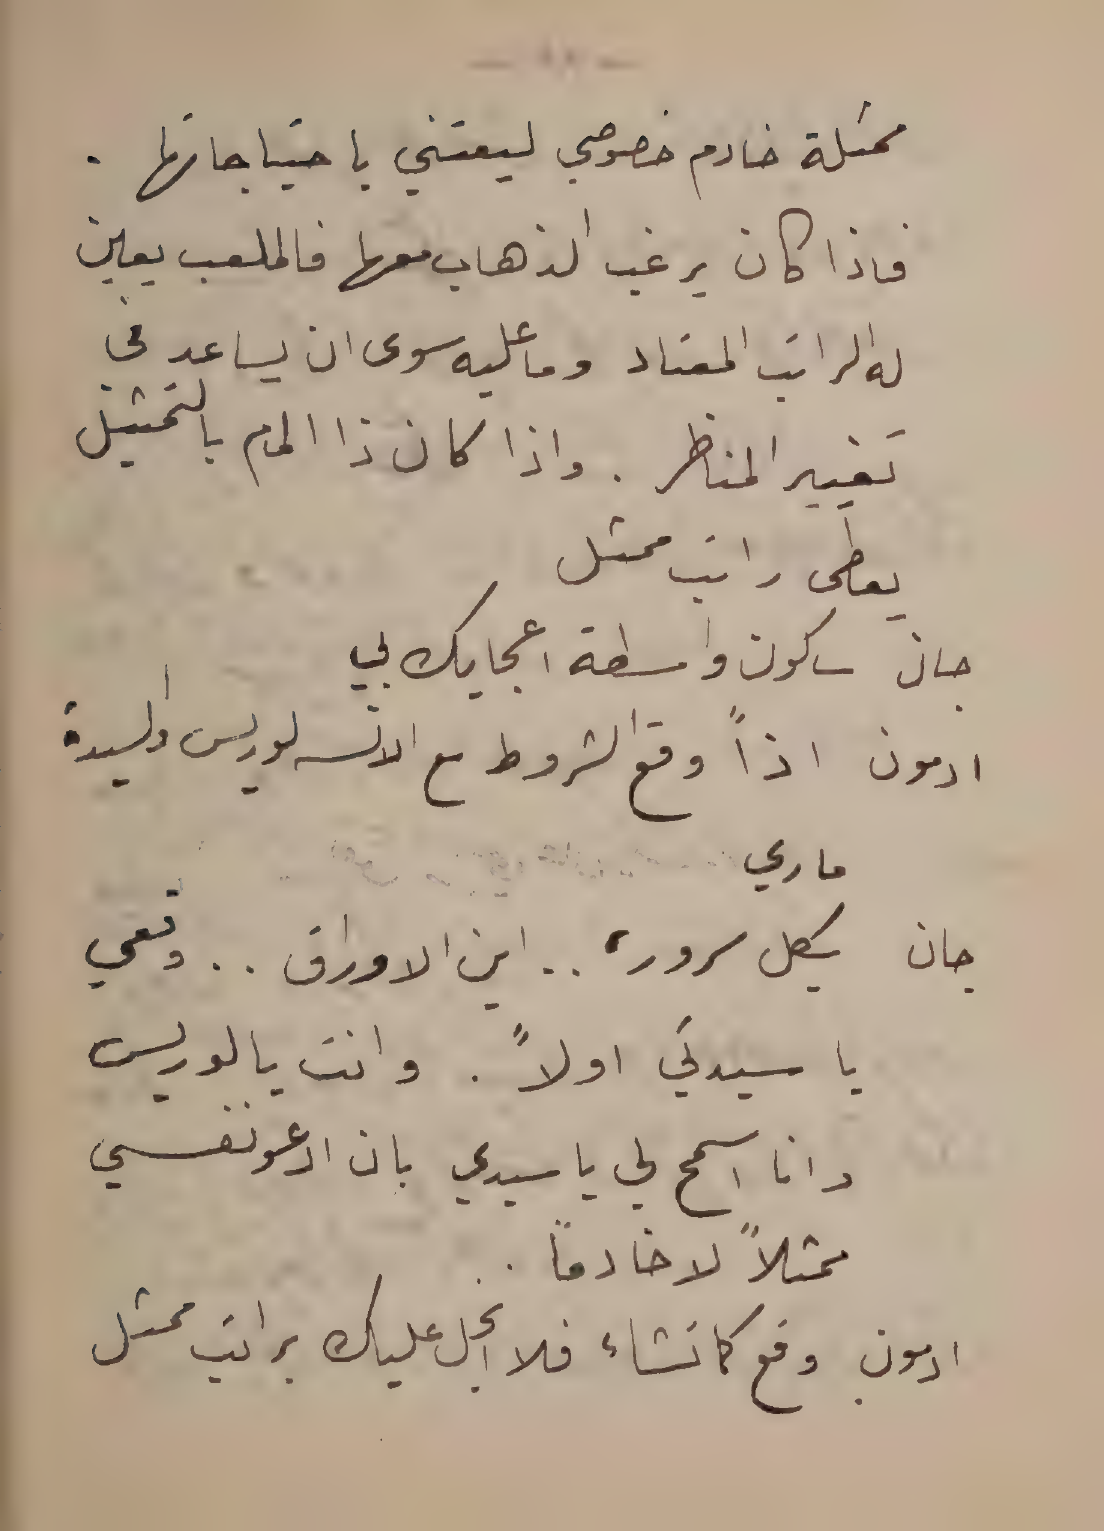 ممثلة خادم خصوصي ليعتني باحتياجاتها .
فاذا كان يرغب الذهاب معها فالملعب يعين
له الراتب المعتاد وما عليه سوى ان يساعد في
تغيير المناظر . واذا كان ذا المام بالتمثيل
يعطى راتب ممثل
جان سأكون واسطة اعجابك بي
ادمون اذاً وقع الشروط مع الانسه لوريس والسيدة
ماري
جان بكل سرور .. اين الاوراق .. وقعي
يا سيدتي اولاً . وانت يا لوريس
وانا اسمح لي يا سيدي بان ادعو نفسي
ممثلاً لا خادماً ..
ادمون وقع كما تشاء فلا ابخل عليك براتب ممثل